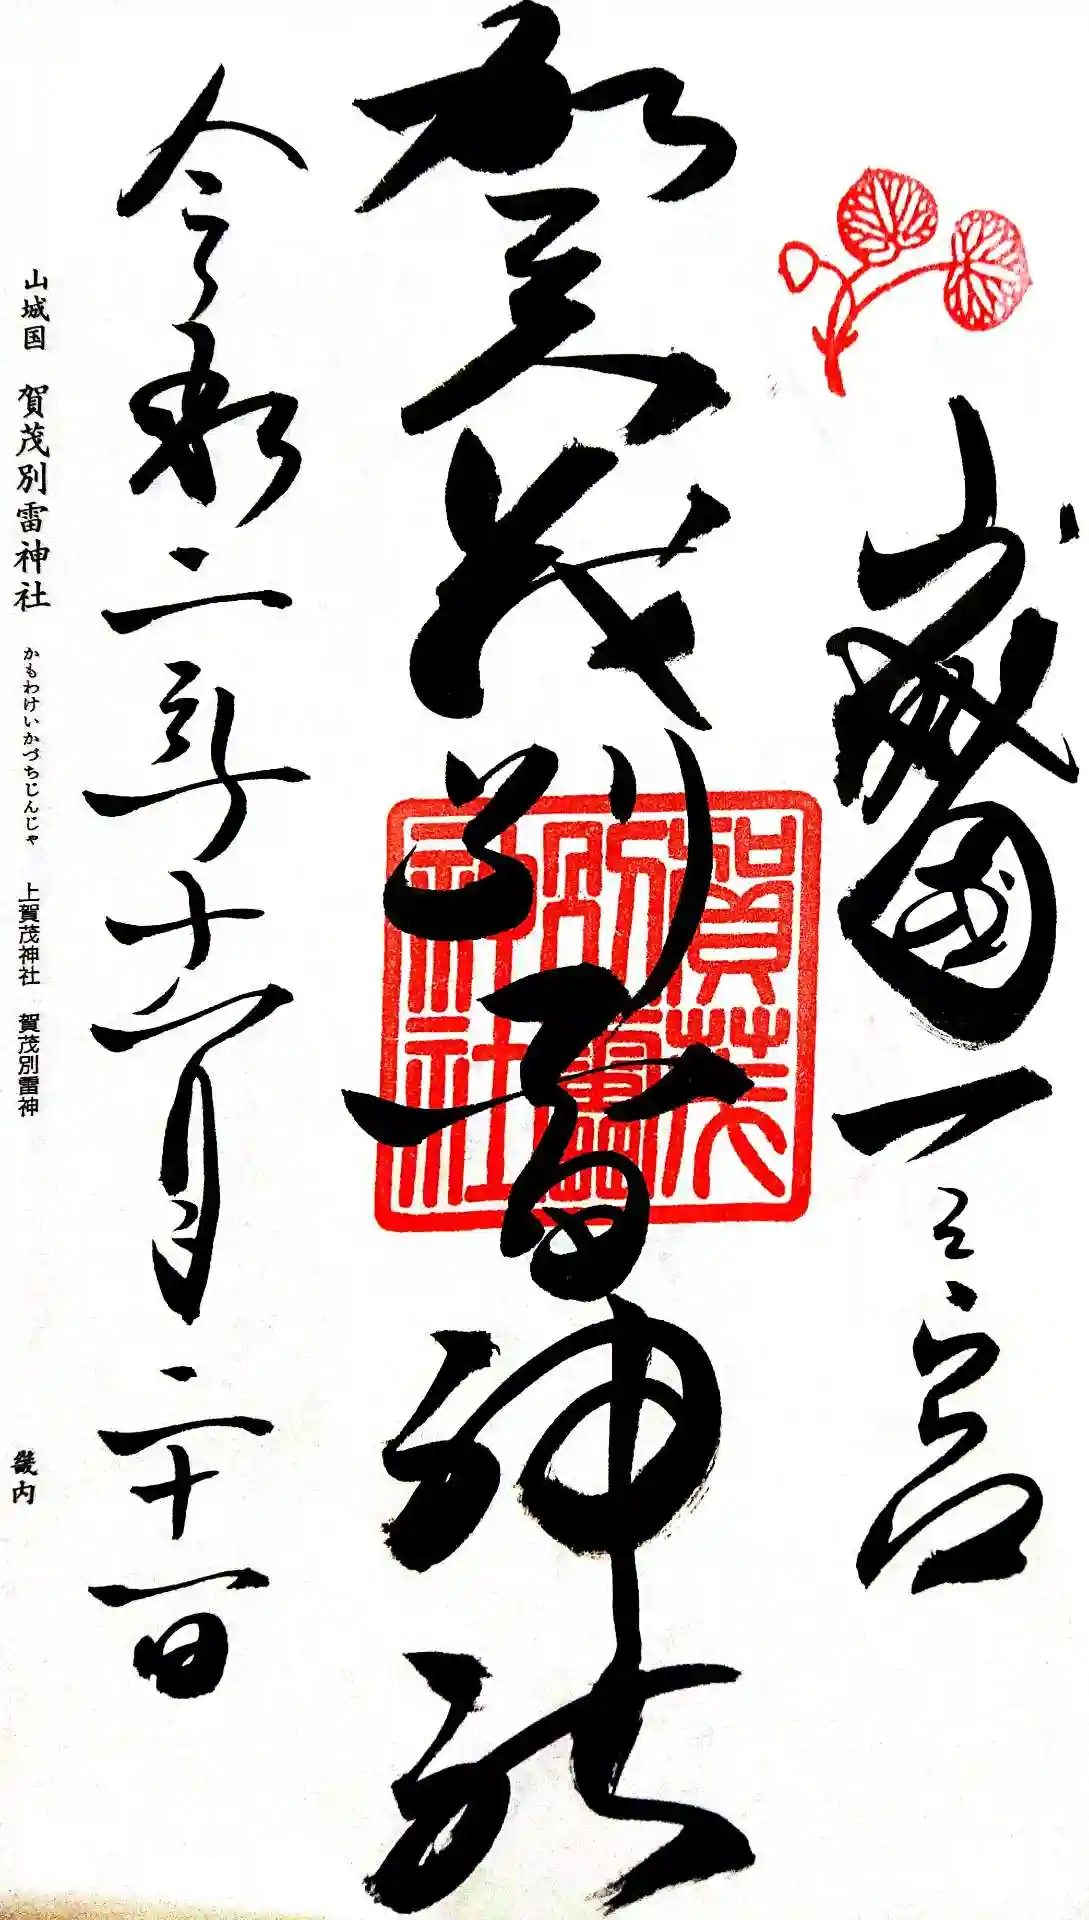 山城國一之宮
賀茂別雷神社
賀茂別雷神社
令和二年十一月二十一日
山城国 賀茂別雷神社 かもわけいかづちじんじゃ 上賀茂神社 賀茂別雷神 畿内